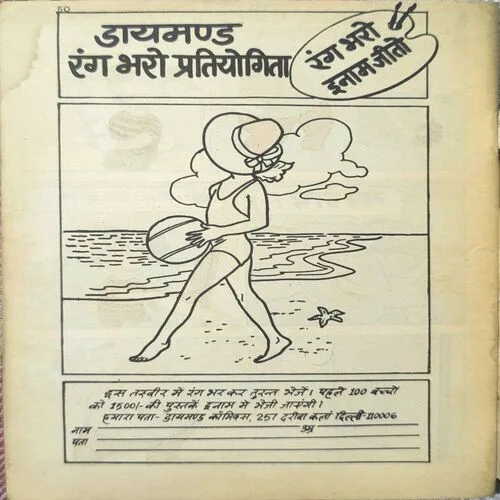 50
डायमण्ड
रंग भरो प्रतियोगिता
रंग भरो
इनाम जीतो
इस तस्वीर में रंग भर कर तुरन्त भेजें। पहले 100 बच्चों
को 1500/- की पुस्तकें इनाम में भेजी जाएंगी।
हमारा पता- डायमण्ड कॉमिक्स, 257 दरीबा कलां दिल्ली-110006
नाम उम्र
पता